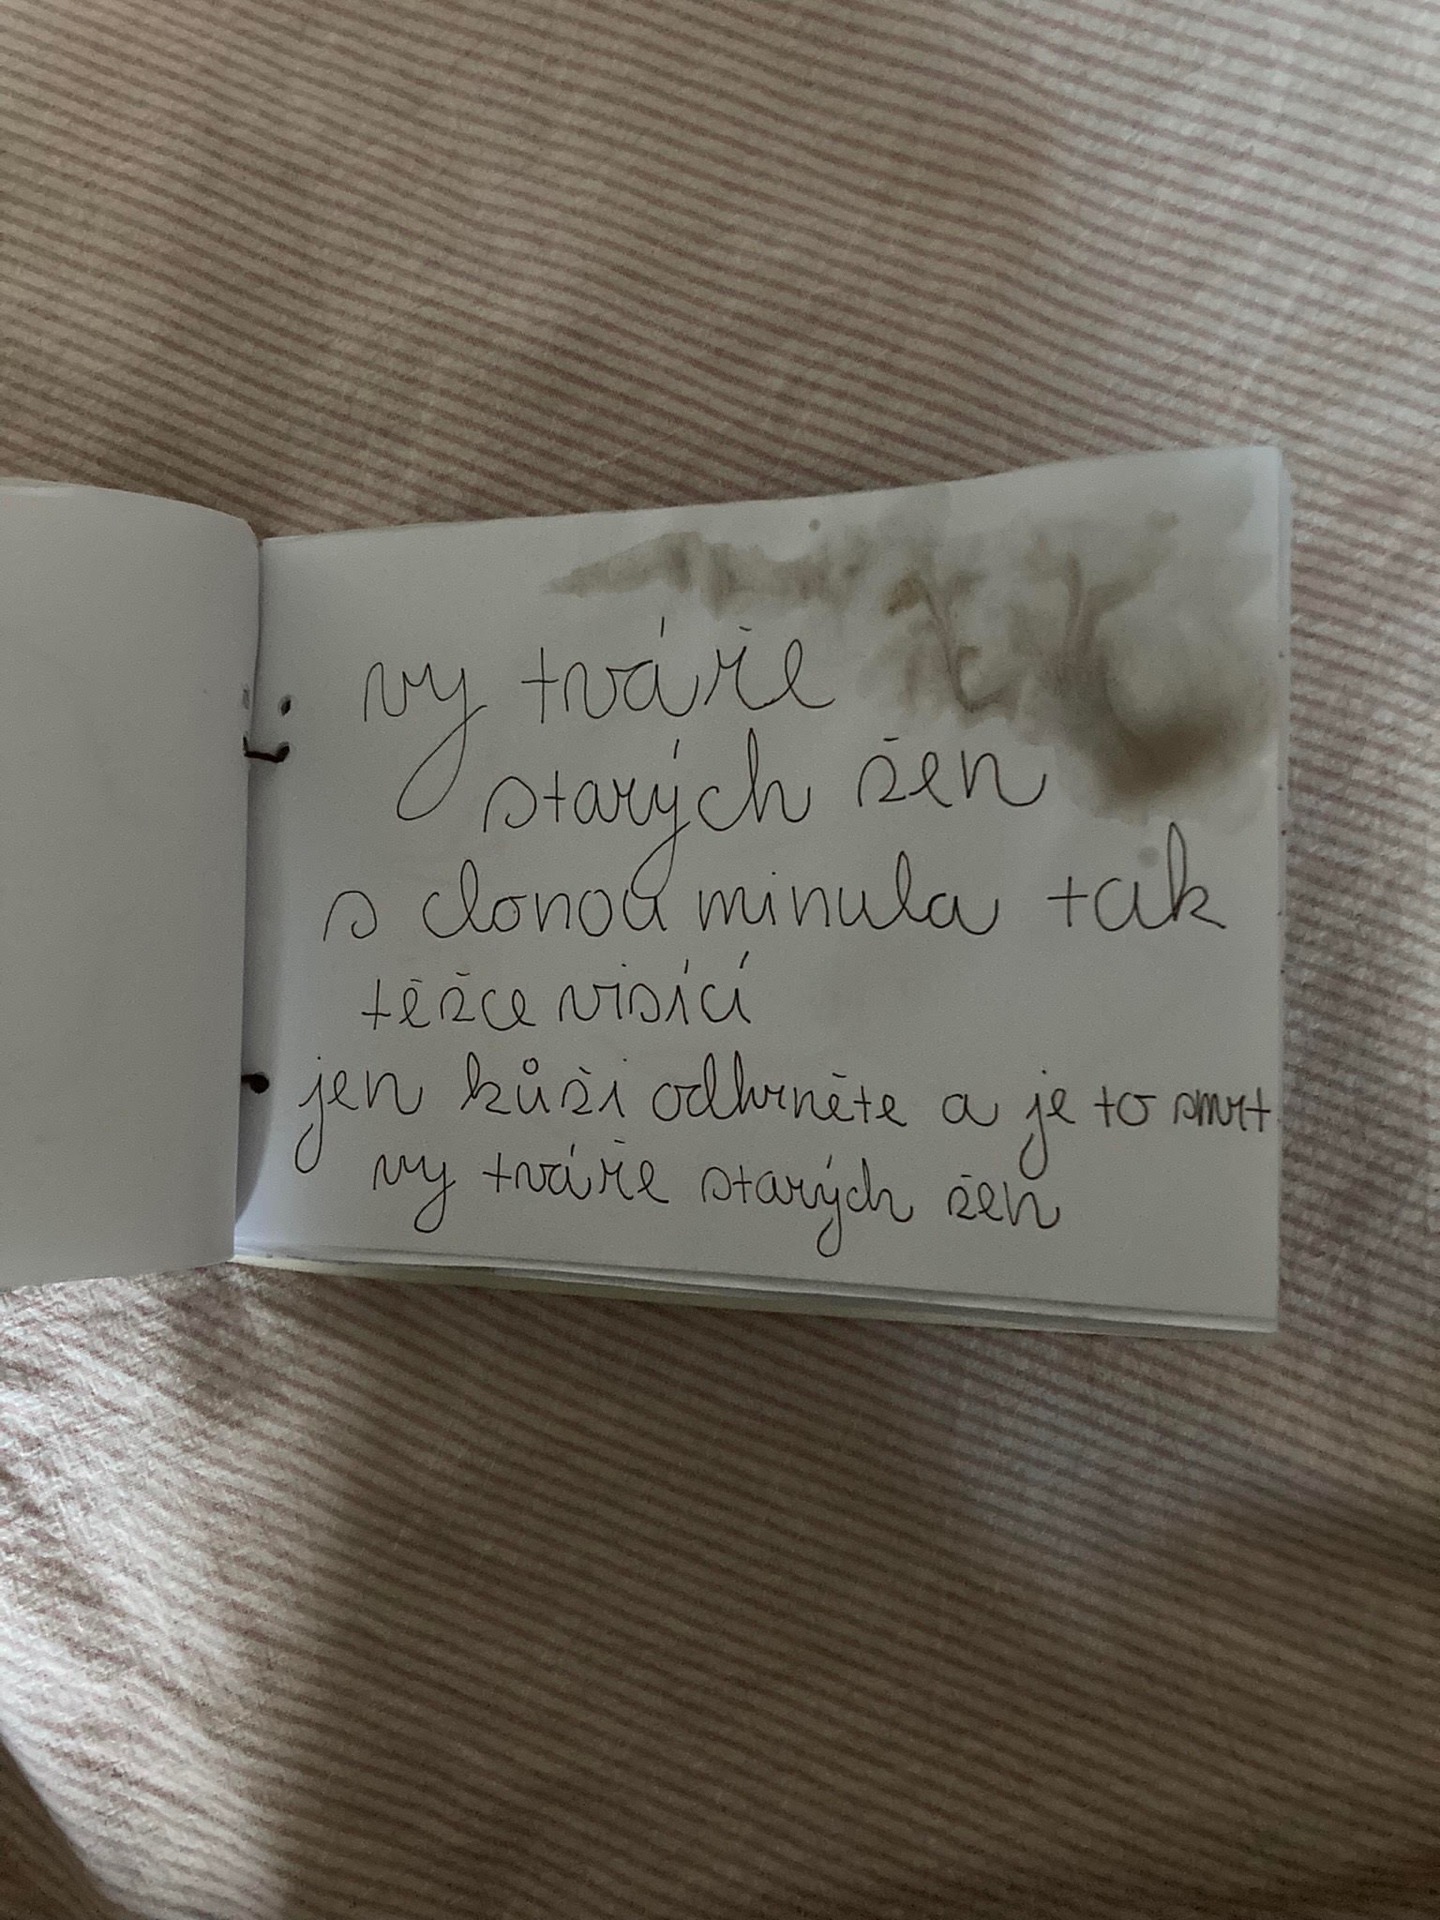 vy tváře
starých žen
s clonou minula tak
těžce visící
jen kůži odhrněte a je to smrt
vy tváře starých žen